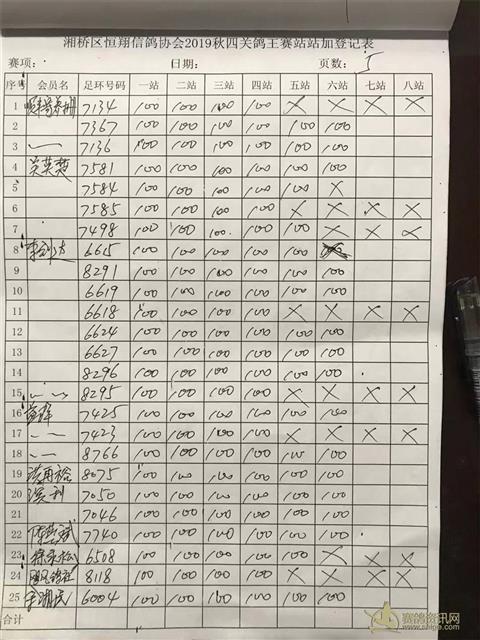 湘桥区恒翔信鸽协会2019秋四关鸽王赛站站加登记表
赛项： 日期： 页数： 5
序号 会员名 足环号码 一站 二站 三站 四站 五站 六站 七站 八站
1 7134 100 100 100 100 X X X X
2 7367 100 100 100 100 100 100
3 7136 100 100 100 100 100 100
4 吴英楚 7581 100 100 100 100 100 100
5 7584 100 100 100 100 100 X
6 7585 100 100 100 100 X X X X
7 7498 100 100 100 100 100 X X X
8 6615 100 100 100 100 100
9 8291 100 100 100 100 100 100
10 6619 100 100 100 100 100 100
11 6618 100 100 100 100 X X X X
12 6624 100 100 100 100 100 100
13 6627 100 100 100 100 100 100
14 8296 100 100 100 100 100 100
15 8295 100 100 100 100 X X X X
16 7425 100 100 100 100 100 100
17 7423 100 100 100 100 X X X X
18 8766 100 100 100 100 100 100
19 8075 100 100 100 100 100 100
20 滨利 7050 100 100 100 100 100 100
21 7046 100 100 100 100 100 100
22 7740 100 100 100 100 100 100
23 6508 100 100 100 100 100 X X X
24 8118 100 100 100 100 X X X X
25 6004 100 100 100 100 100 100
合计
赛鸽资讯网